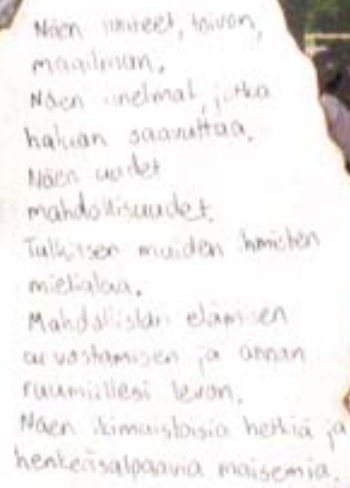 Näen iskiteet, toivon,
maailman.
Näen unelmat, jotka
haluan saavuttaa.
Näen uudet
mahdollisuudet.
Tulkitsen muiden ihmisten
mielialaa.
Mahdollistan elämisen
arvostamisen ja annan
ruumiillesi levon.
Näen ikimuistoisia hetkiä ja
henkeäsalpaavia maisemia.